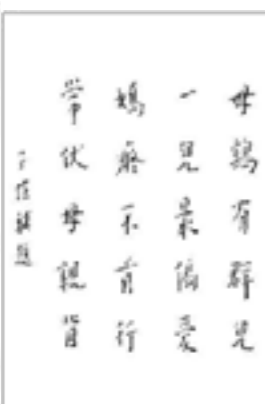 母鷄有群兒
一兒最偏愛
嬌癡不肯行
常伏母親背